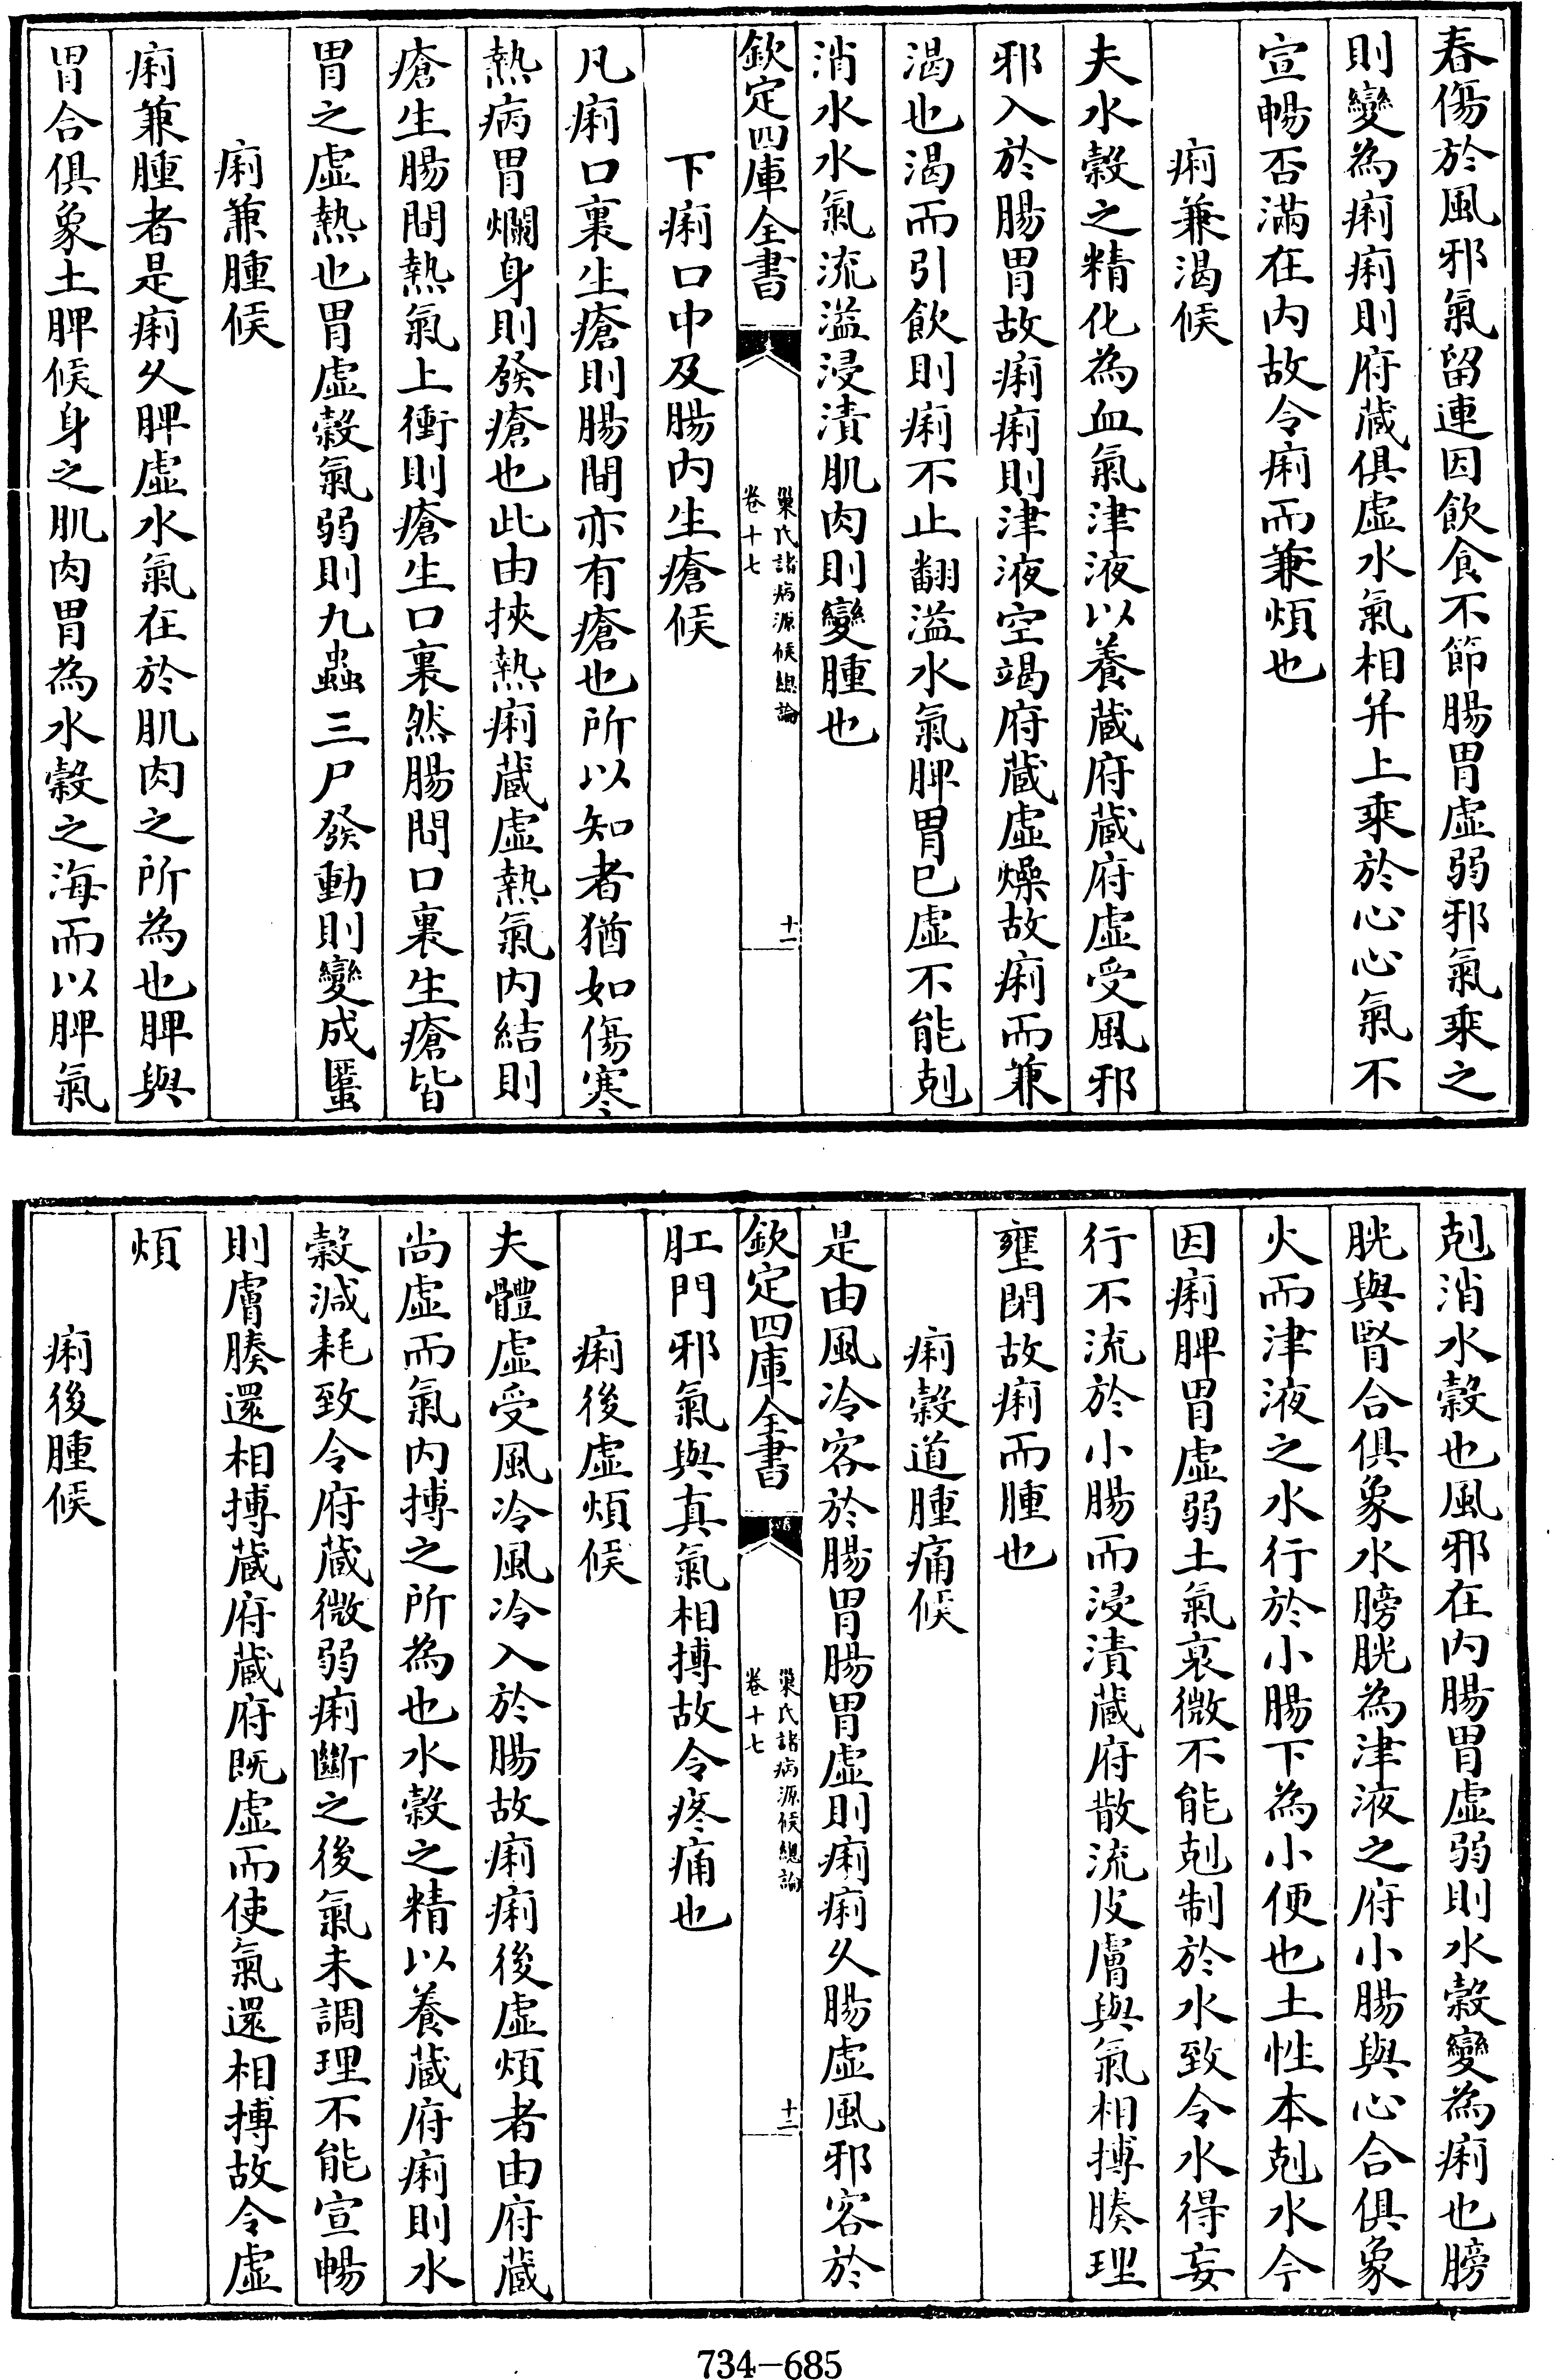 春傷於風邪氣留連因飲食不節腸胃虛弱邪氣乘之
則變為痢痢則府藏俱虛水氣相并上乘於心心氣不
宣暢否滿在內故令痢而兼煩也
痢兼渴候
夫水穀之精化為血氣津液以養藏府藏府虛受風邪
邪入於腸胃故痢痢則津液空竭府藏虛燥故痢而兼
渴也渴而引飲則痢不止翻溢水氣脾胃已虛不能剋
消水水氣流溢浸漬肌肉則變腫也
欽定四庫全書
巢氏諸病源候總論
卷十七
十一
下痢口中及腸內生瘡候
凡痢口裏生瘡則腸間亦有瘡也所以知者猶如傷寒
熱病胃爛身則發瘡也此由挾熱痢藏虛熱氣內結則
瘡生腸間熱氣上衝則瘡生口裏然腸間口裏生瘡皆
胃之虛熱也胃虛穀氣弱則九蟲三尸發動則變成䘌
痢兼腫候
痢兼腫者是痢久脾虛水氣在於肌肉之所為也脾與
胃合俱象土脾候身之肌肉胃為水穀之海而以脾氣
剋消水穀也風邪在內腸胃虛弱則水穀變為痢也膀
胱與腎合俱象水膀胱為津液之府小腸與心合俱象
火而津液之水行於小腸下為小便也土性本剋水今
因痢脾胃虛弱土氣衰微不能剋制於水致令水得妄
行不流於小腸而浸漬藏府散流皮膚與氣相搏腠理
壅閉故痢而腫也
痢穀道腫痛候
是由風冷客於腸胃腸胃虛則痢痢久腸虛風邪客於
欽定四庫全書
巢氏諸病源候總論
卷十七
十二
肛門邪氣與真氣相搏故令疼痛也
痢後虛煩候
夫體虛受風冷風冷入於腸故痢痢後虛煩者由府藏
尚虛而氣內搏之所為也水穀之精以養藏府痢則水
穀減耗致令府藏微弱痢斷之後氣未調理不能宣暢
則膚腠還相搏藏府藏府既虛而使氣還相搏故令虛
煩
痢後腫候
734-685